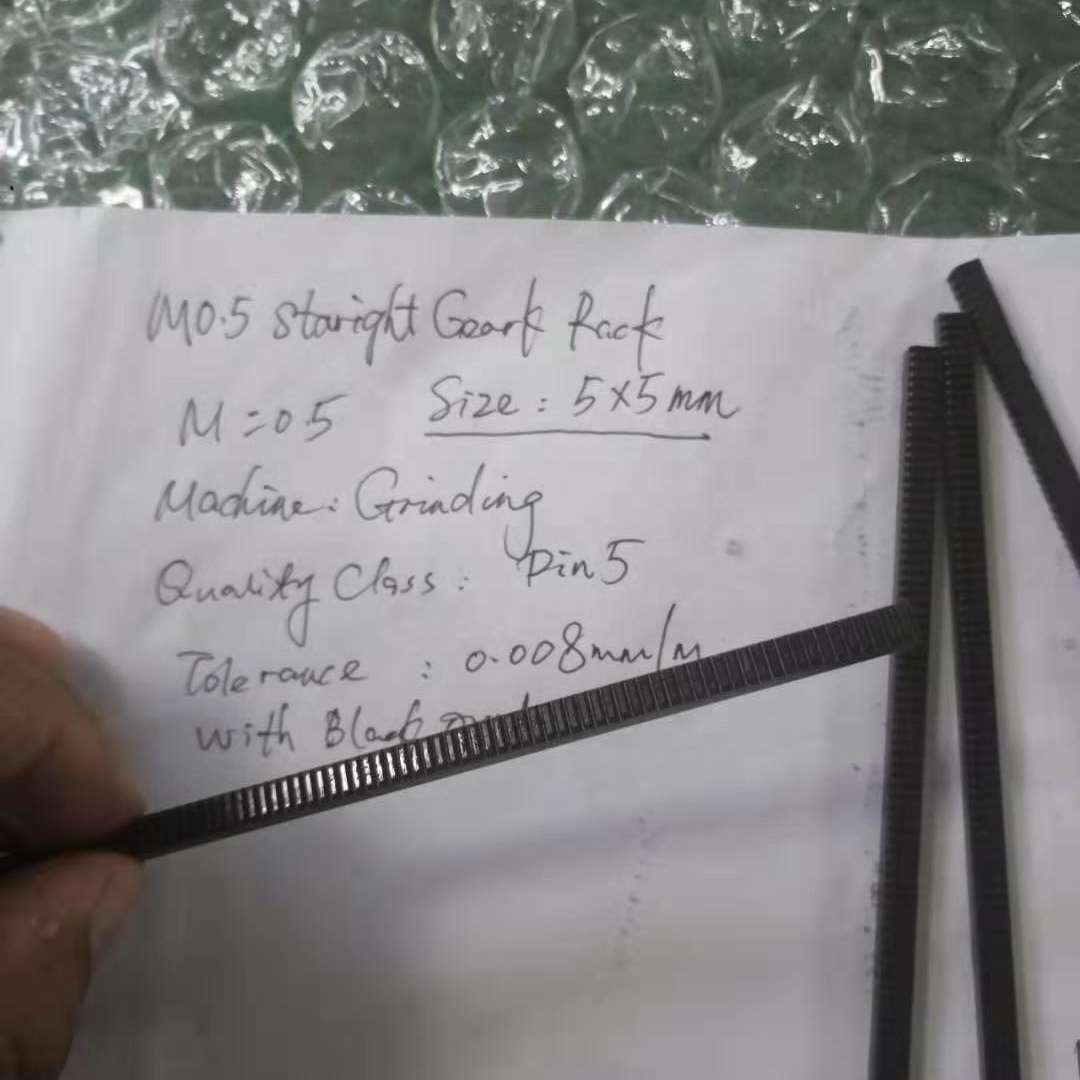 M0.5 Staright Geark Rack
M=0.5 Size: 5x5mm
Machine: Grinding
Quality Class: Din 5
Tolerance : 0.008mm/m
with Black